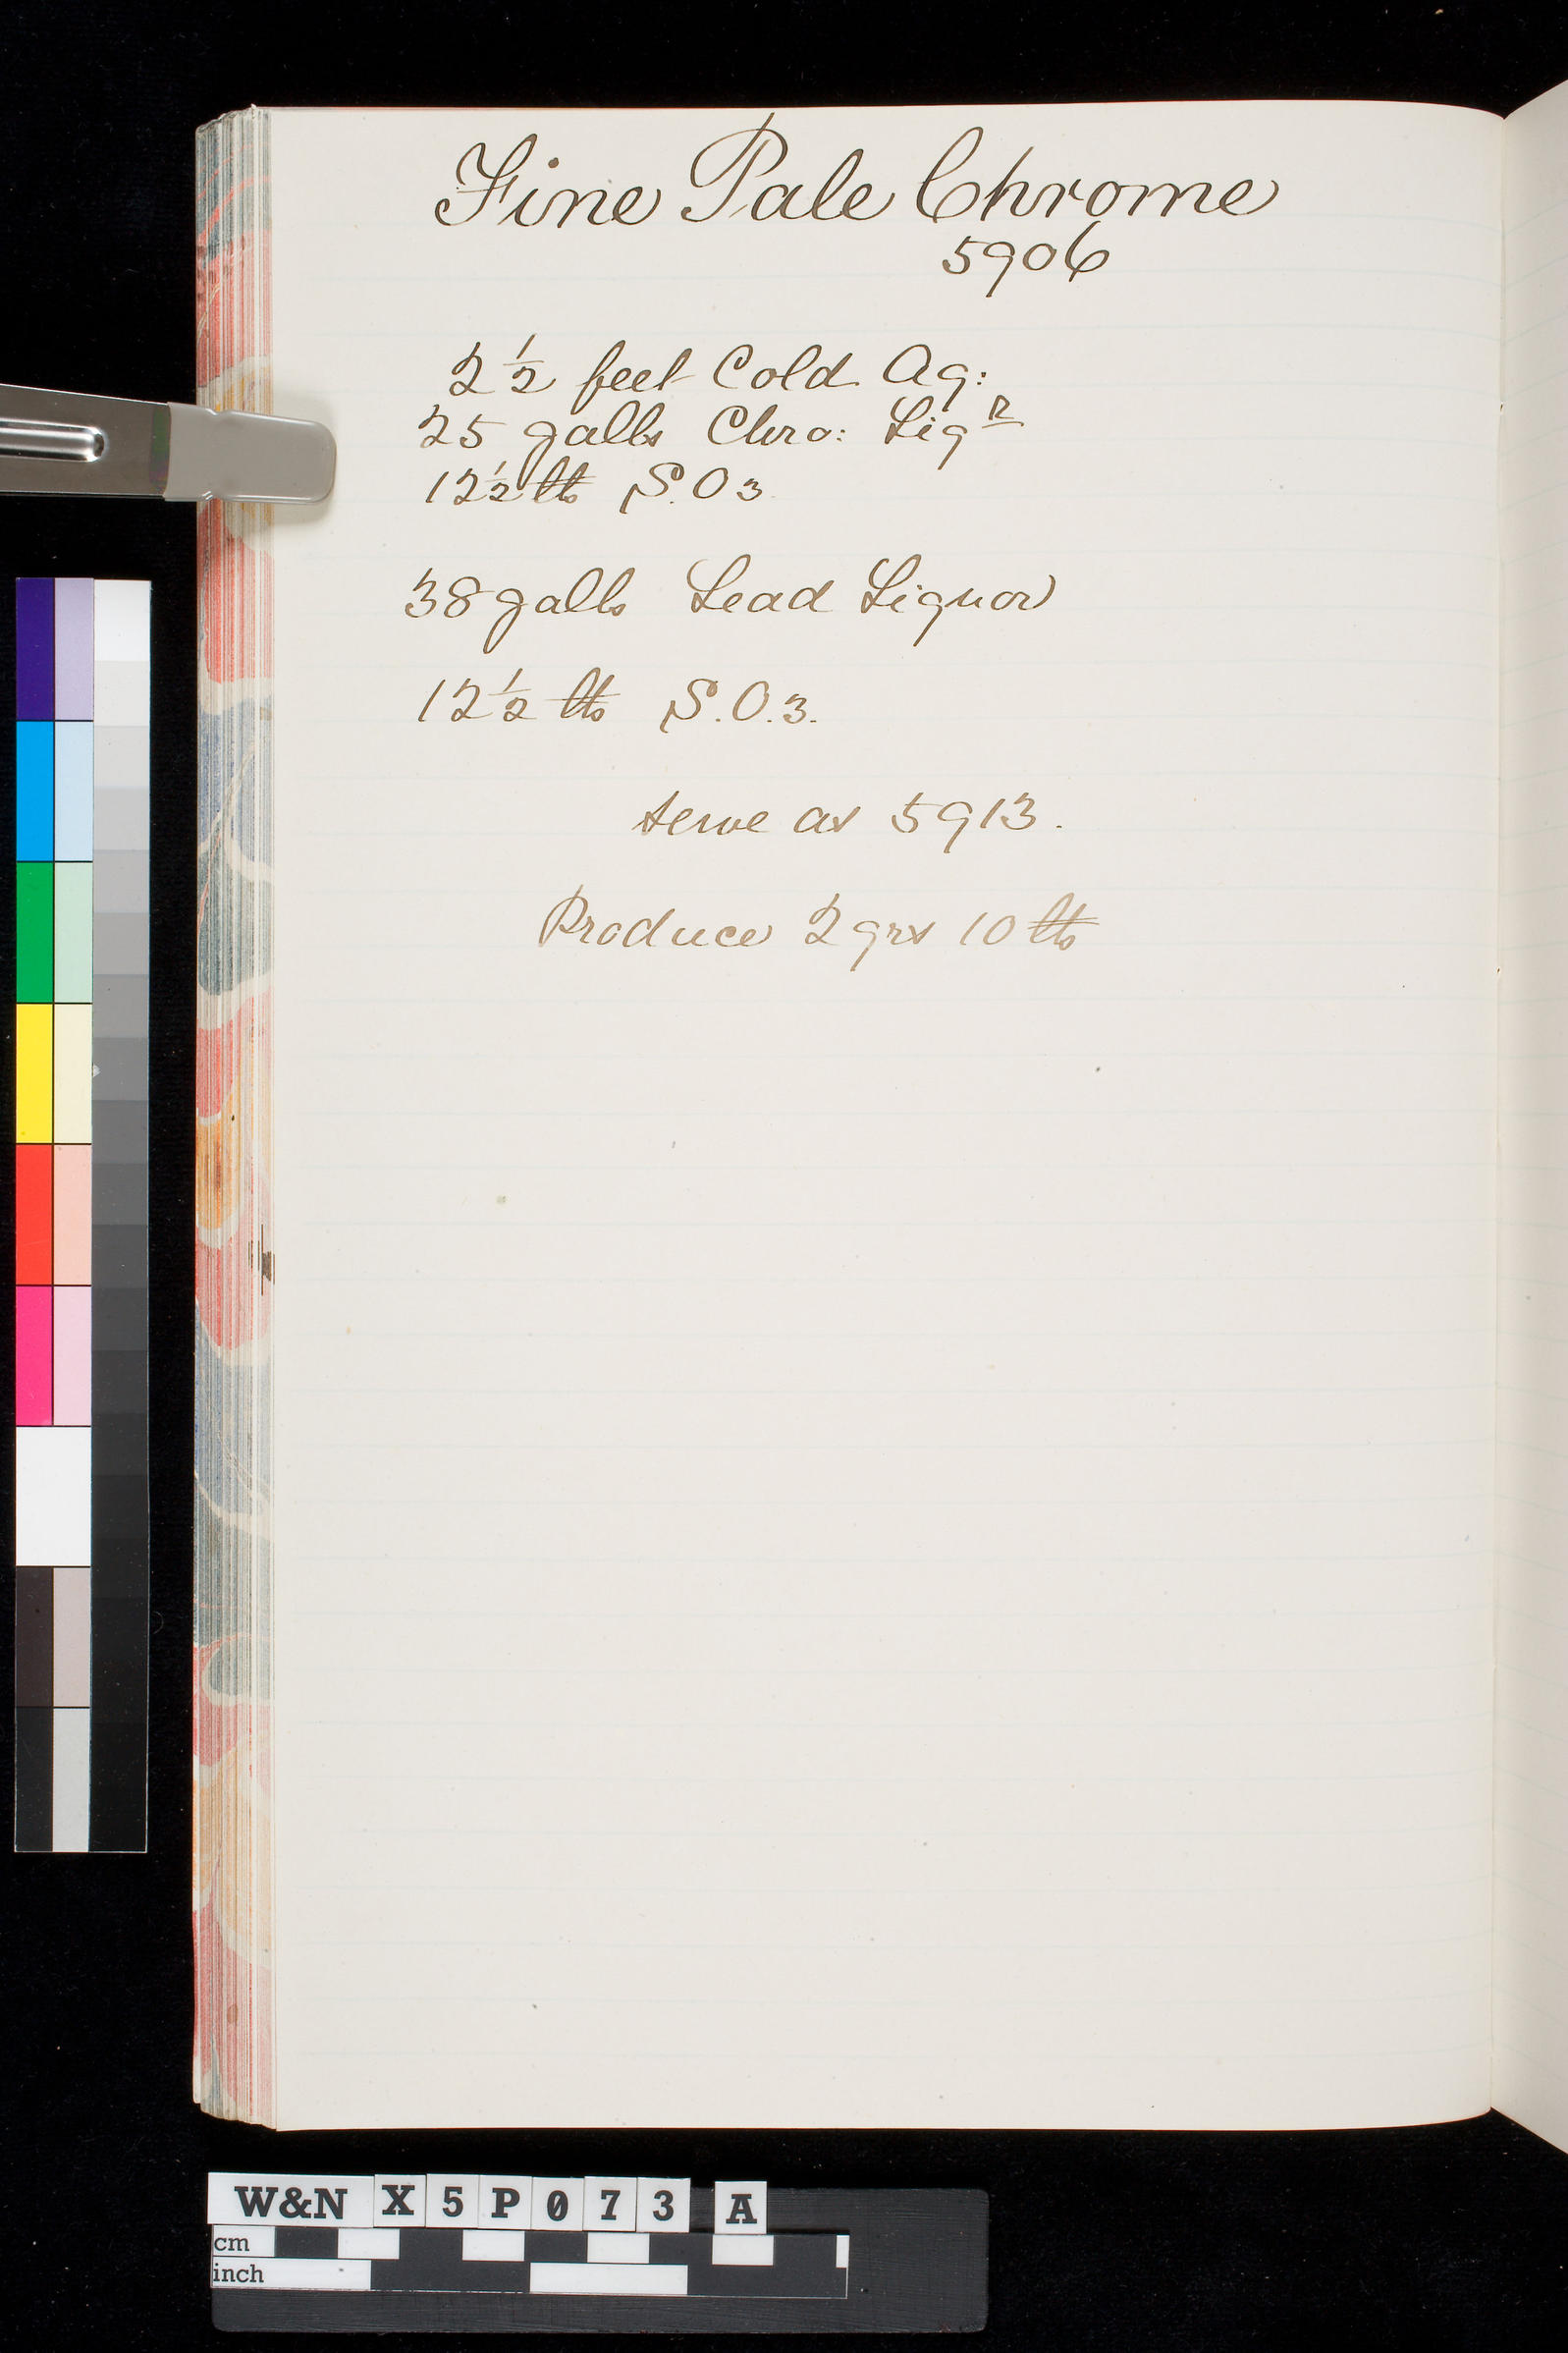 Fine Pale Chrome
5906
2 1/2 feet Cold Aq:
25 galls Chro: Liqr
12 1/2 lbs S.O3
38 galls Lead Liquor
12 1/2 lbs S.O.3.
serve as 5913.
Produce 2 qrs 10 lbs
W&N X5P073 A
cm
inch